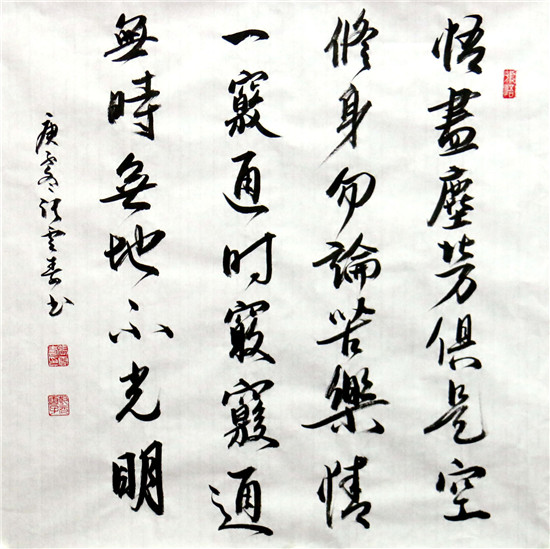 悟盡塵芳俱是空
修身勿論苦樂情
一竅通时竅竅通
無時無地不光明
庚冬张雲春书